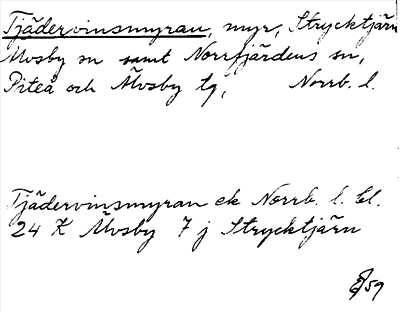 Tjädervinsmyran, myr, Strycktjärn
Älvsby sn samt Norrfjärdens sn,
Piteå och Älvsby tg, Norrb. l.
Tjädervinsmyran ek Norrb. l. bl.
24 K Älvsby 7 j Strycktjärn
59